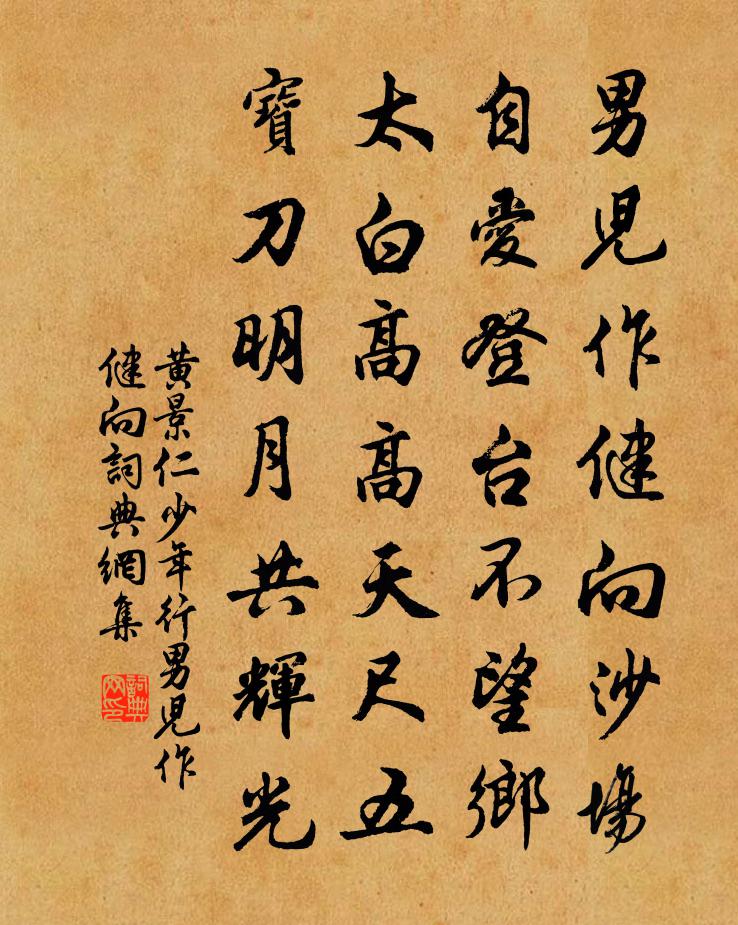 男兒作健向沙場
自愛登台不望鄉
太白高高天尺五
寶刀明月共輝光
黃景仁少年行男兒作
健向詞典網集
詞典
网印